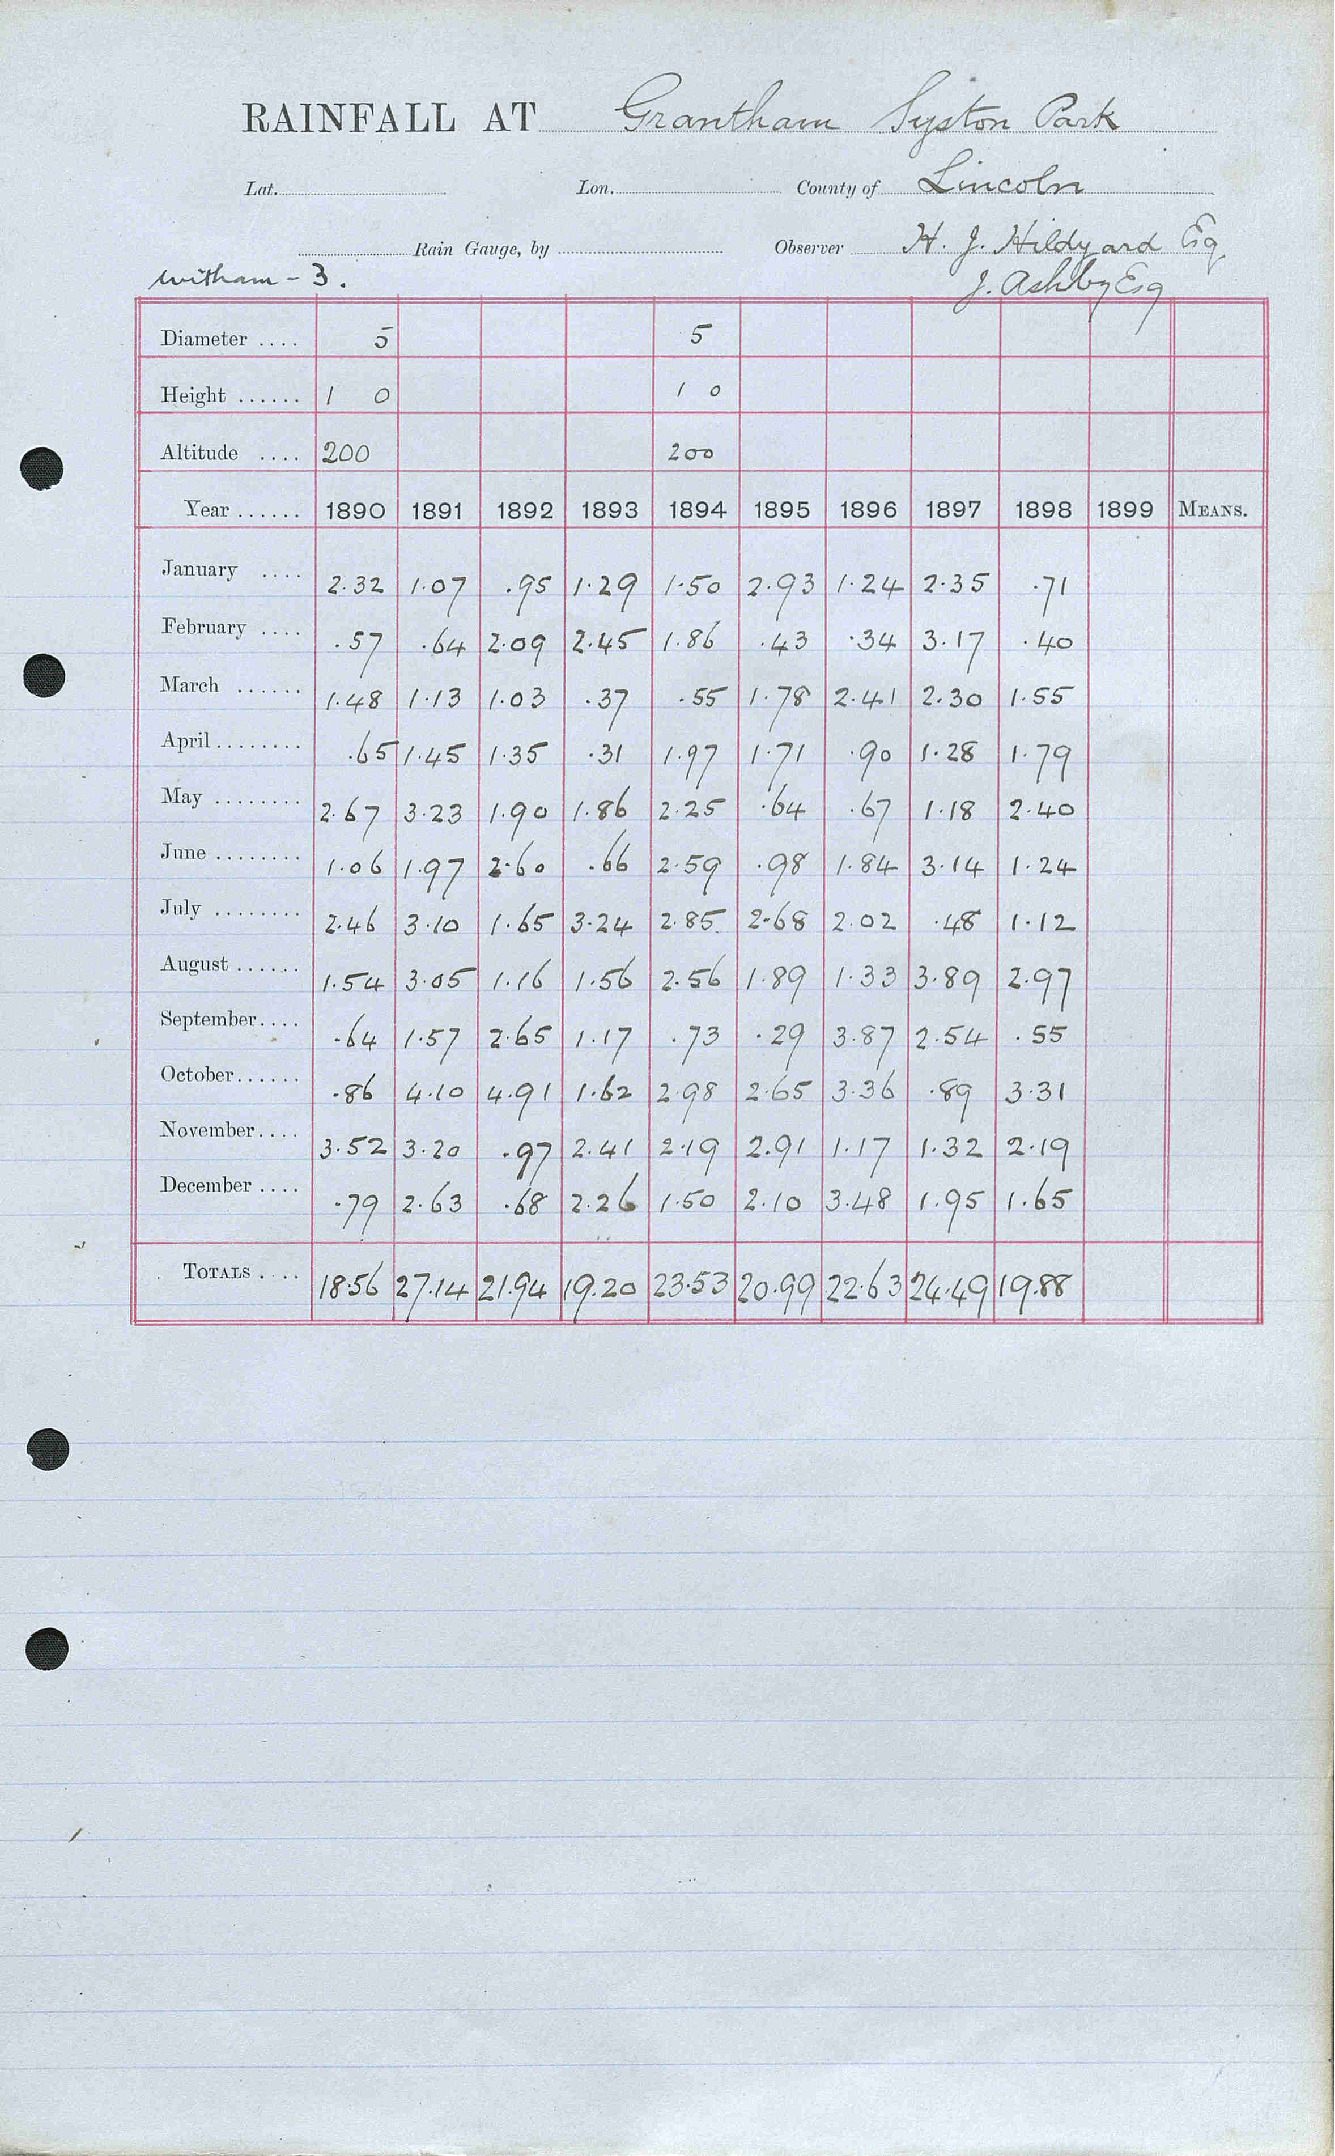 RAINFALL AT Grantham Syston Park
Lat. Lon. County of Lincoln
Rain Gauge, by Observer H. J. Hildyard Esq
Witham - 3. J. Ashby Esq
Diameter .... 5 5
Height ...... 1 0 1 0
Altitude .... 200 200
Year ...... 1890 1891 1892 1893 1894 1895 1896 1897 1898 1899 MEANS.
January .... 2.32 1.07 .95 1.29 1.50 2.93 1.24 2.35 .71
February .... .57 .64 2.09 2.45 1.86 .43 .34 3.17 .40
March ...... 1.48 1.13 1.03 .37 .55 1.78 2.41 2.30 1.55
April ........ .65 1.45 1.35 .31 1.97 1.71 .90 1.28 1.79
May ........ 2.67 3.23 1.90 1.86 2.25 .64 .67 1.18 2.40
June ........ 1.06 1.97 2.60 .66 2.59 .98 1.84 3.14 1.24
July ........ 2.46 3.10 1.65 3.24 2.85 2.68 2.02 .48 1.12
August ...... 1.54 3.05 1.16 1.56 2.56 1.89 1.33 3.89 2.97
September .... .64 1.57 2.65 1.17 .73 .29 3.87 2.54 .55
October ...... .86 4.10 4.91 1.62 2.98 2.65 3.36 .89 3.31
November .... 3.52 3.20 .97 2.41 2.19 2.91 1.17 1.32 2.19
December .... .79 2.63 .68 2.26 1.50 2.10 3.48 1.95 1.65
TOTALS .... 18.56 27.14 21.94 19.20 23.53 20.99 22.63 24.49 19.88